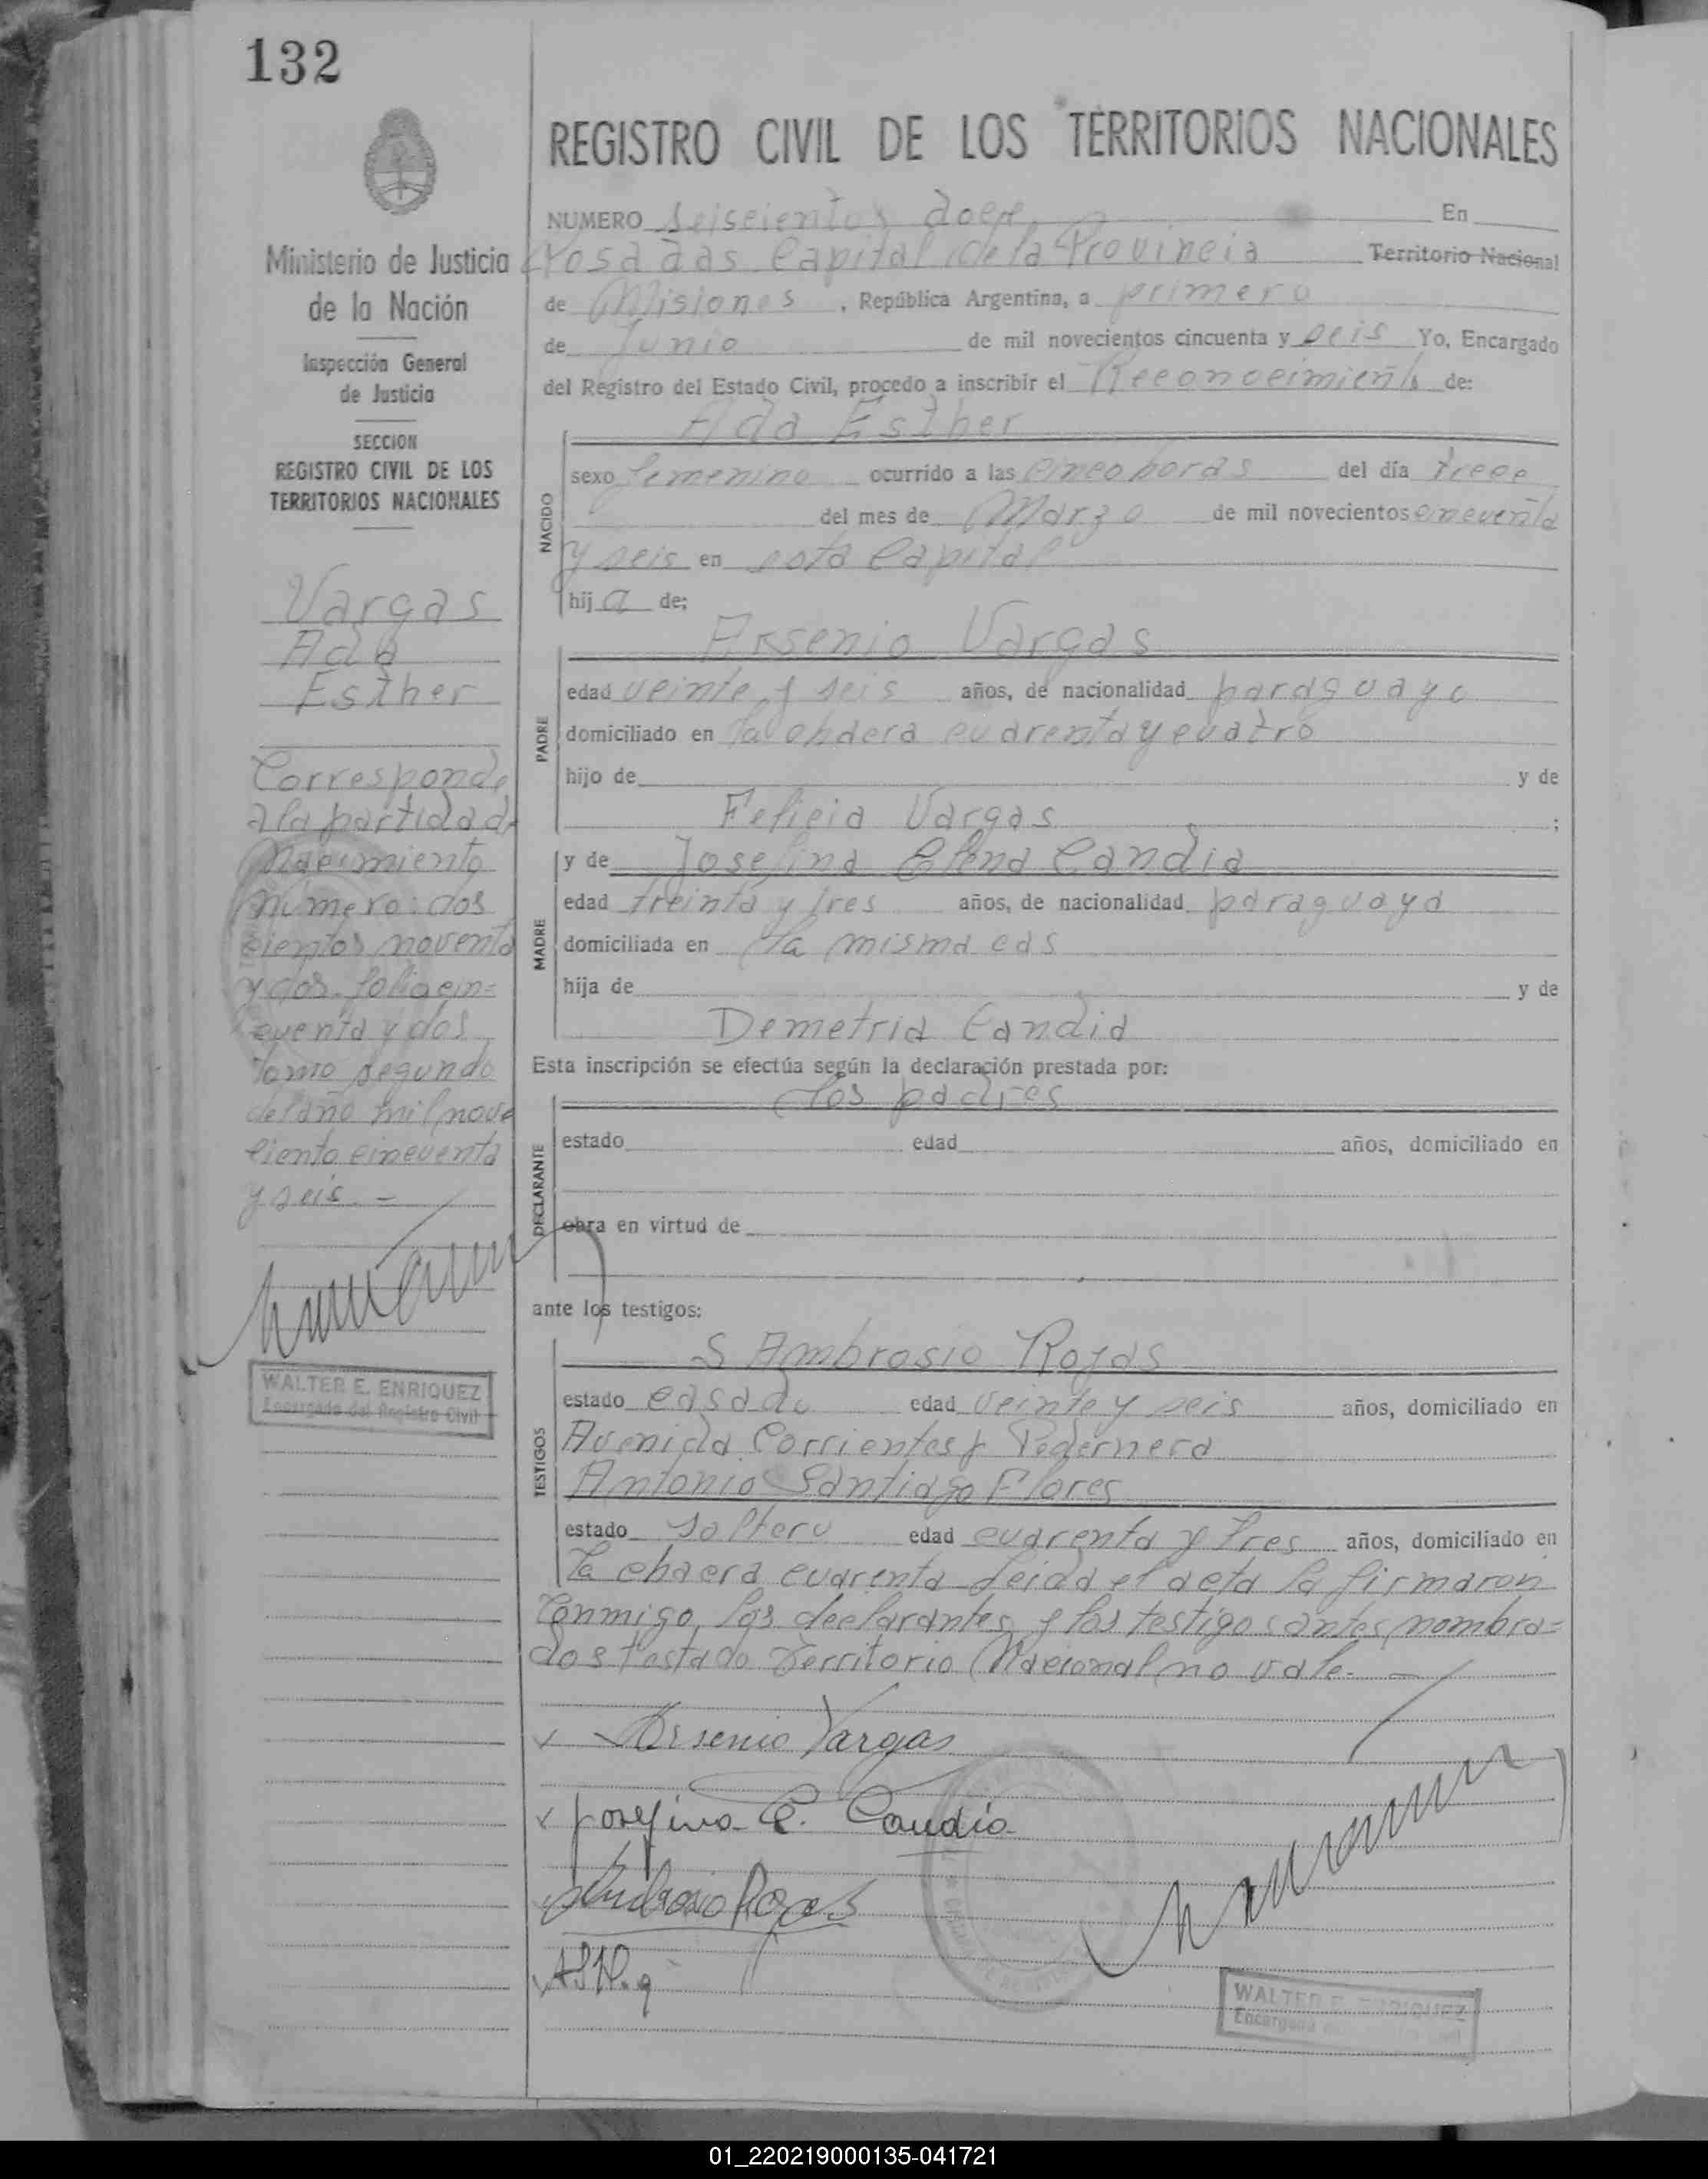 132
REGISTRO CIVIL DE LOS TERRITORIOS NACIONALES
Ministerio de Justicia
de la Nación
Inspección General
de Justicia
SECCION
REGISTRO CIVIL DE LOS
TERRITORIOS NACIONALES
Vargas
Ada
Esther
Corresponde
a la partida de
Nacimiento
número: dos
cientos noventa
y dos folio cin=
cuenta y dos
tomo segundo
del año mil nove
ciento cincuenta
y seis. =
WALTER E. ENRIQUEZ
Encargado del Registro Civil
NUMERO seiscientos doce En
Posadas Capital de la Provincia Territorio Nacional
de Misiones, República Argentina, a primero
de Junio de mil novecientos cincuenta y seis Yo, Encargado
del Registro del Estado Civil, procedo a inscribir el Reconocimiento de:
NACIDO
Ada Esther
sexo femenino ocurrido a las cinco horas del día trece
del mes de Marzo de mil novecientos cincuenta
y seis en esta Capital
hija de;
PADRE
Arsenio Vargas
edad veinte y seis años, de nacionalidad paraguayo
domiciliado en la chacra cuarenta y cuatro
hijo de y de
Felicia Vargas ;
MADRE
y de Josefina Elena Candia
edad treinta y tres años, de nacionalidad paraguaya
domiciliada en la misma cas
hija de y de
Demetria Candia
Esta inscripción se efectúa según la declaración prestada por:
DECLARANTE
los padres
estado edad años, domiciliado en
obra en virtud de
ante los testigos:
TESTIGOS
S Ambrosio Rojas
estado casado edad veinte y seis años, domiciliado en
Avenida Corrientes y Pedernera
Antonio Santiago Flores
estado soltero edad cuarenta y tres años, domiciliado en
la chacra cuarenta leida el acta la firmaron
conmigo, los declarantes y los testigos antes nombra=
dos testado Territorio Nacional no vale. —
Arsenio Vargas
Josefina E. Candia
Ambrosio Rojas
WALTER E. ENRIQUEZ
Encargado
01_220219000135-041721